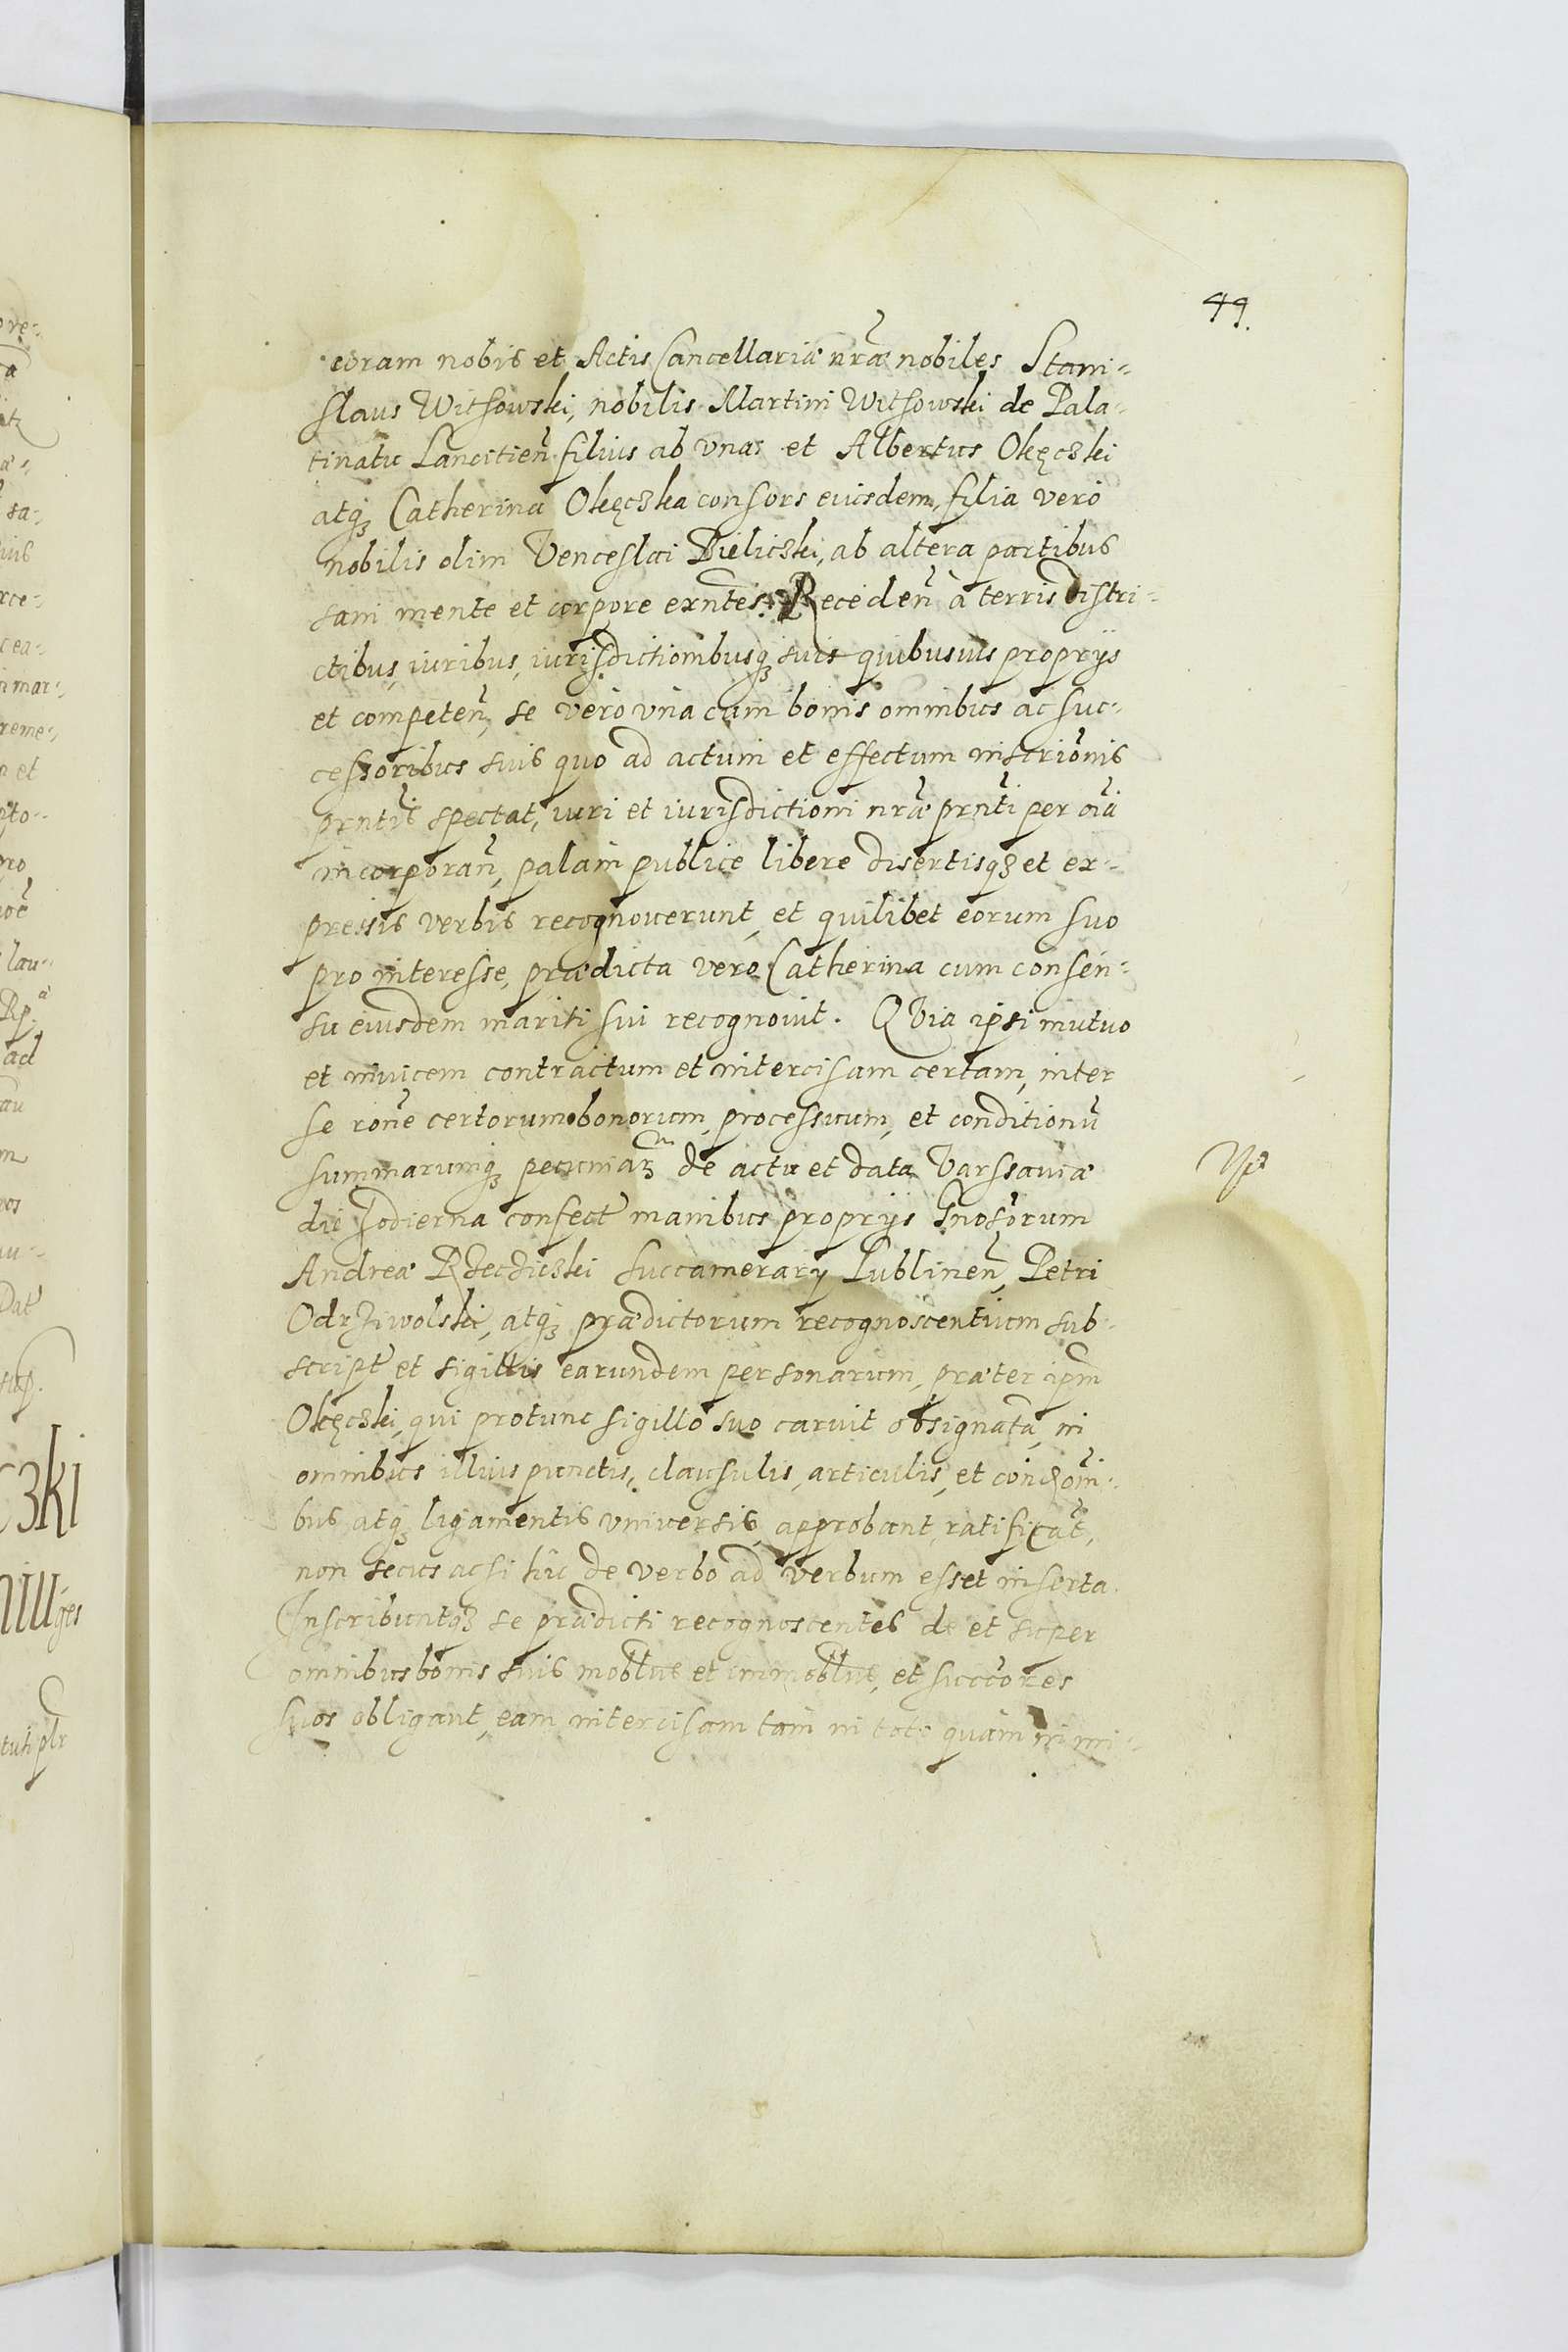 49.
coram nobis et Actis Cancellariæ nræ nobiles Stani=
slaus Witsowski, nobilis Martini Witsowski de Pala=
tinatu Lancitien filius ab vna, et Albertus Okęczki
atq3 Catherina Okęczka consors eiusdem, filia vero
nobilis olim Venceslai Bieliczki, ab altera partibus
sani mente et corpore exntes. Receden à terris distri=
ctibus, iuribus, iurisdictionibusq3 suis quibusuis proprijs
et competen, se vero vna cum bonis omnibus ac suc=
cessoribus suis quo ad actum et effectum inscrionis
prntis spectat, iuri et iurisdictioni nræ prnti per oia
incorporan, palam publice libere disertisq3 et ex=
pressis verbis recognouerunt, et quilibet eorum suo
pro interesse, prædicta vero Catherina cum consen=
su eiusdem mariti sui recognouit. QVia ipsi mutuo
et inuicem contractum et intercisam certam, inter
se rone certorum bonorum, processuum, et conditionu
summarumq3 pecuniar de actu et data Varssauiæ
die hodierna confect manibus proprijs Gnosorum
Andreæ Rzecziczki Succamerarij Lublinen, Petri
Odrziwolski, atq3 prædictorum recognoscentium sub=
script et sigillis earundem personarum, præter ipm
Okęczki, qui protunc sigillo suo caruit obsignata, in
omnibus illius punctis, clausulis, articulis, et condoni=
bus atq3 ligamentis vniuersis, approbant, ratificat,
non secus ac si hic de verbo ad verbum esset inserta.
Inscribuntq3 se prædicti recognoscentes de et super
omnibus bonis suis moblus et immoblus, et succores
suos obligant, eam intercisam tam in toto quam in mi=